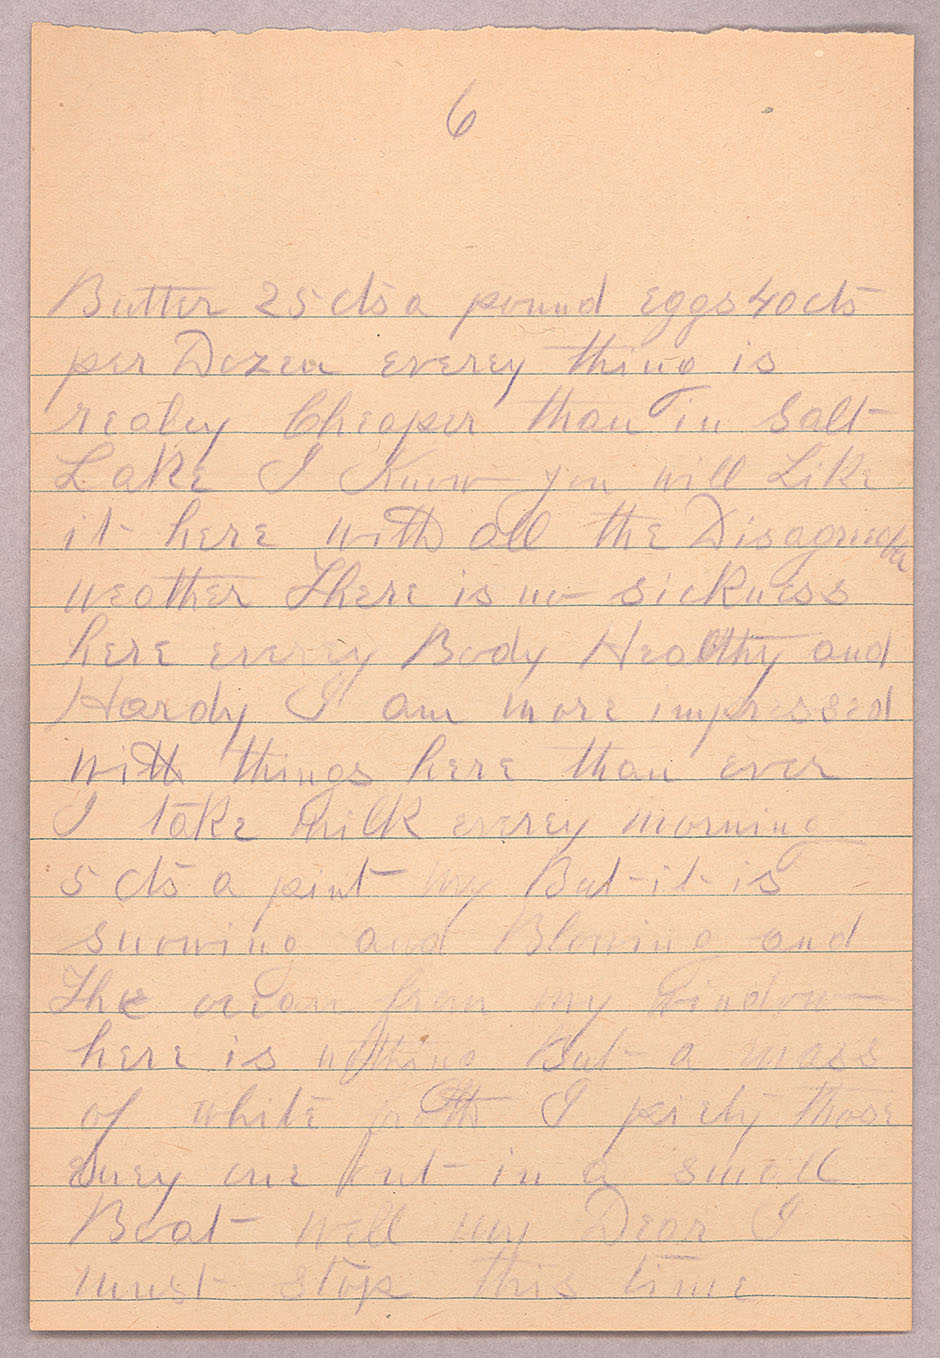 6
Butter 25 cts a pound eggs 40 cts
per Dozen everey thing is
realey Cheaper than in Salt
Lake I Know you will Like
it here with all the
weather There is no sickness
here everey Body Healthy and
Hardy I am more impressed
with things here than ever
I take milk everey morning
5 cts a pint my But it is
snowing and Blowing and
The ocean from my Window
here is nothing But a mass
of white froth I piety those
eney one out in a small
Boat Well my Dear I
must stop this time